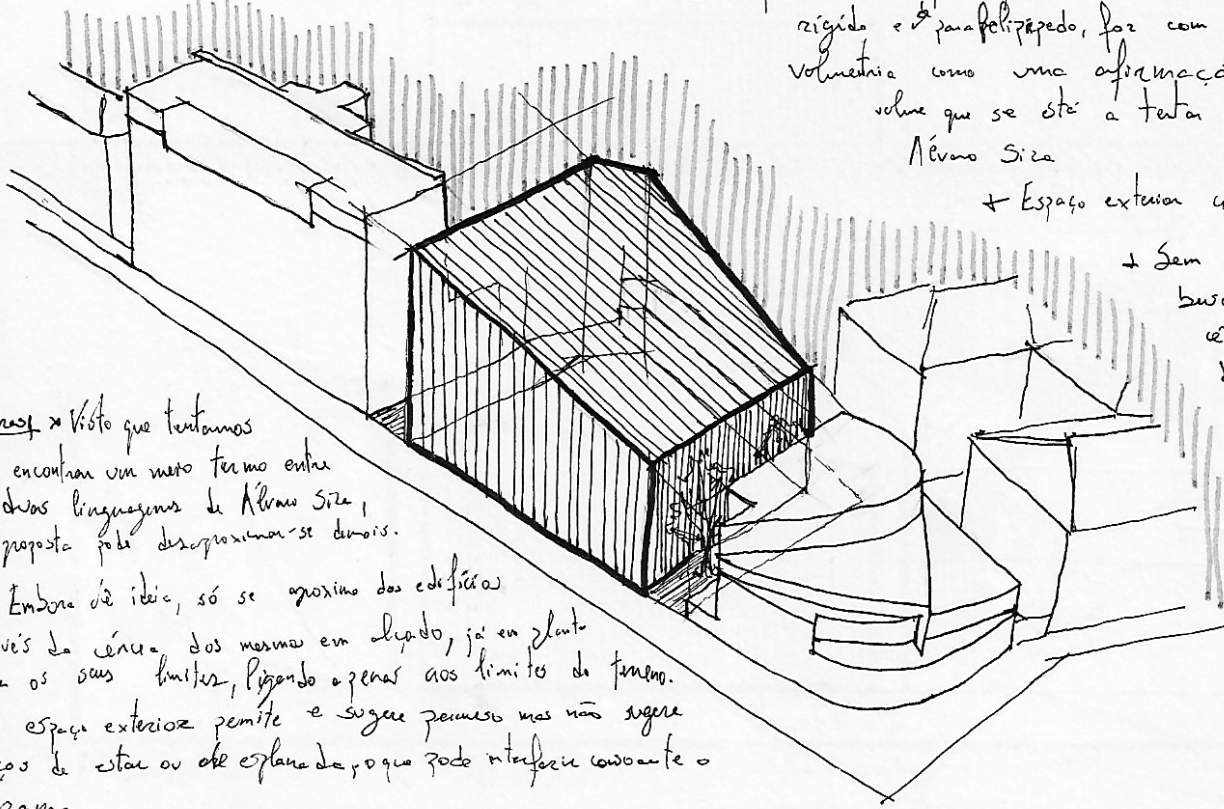 rígido e paralelipípedo, faz com
volumetria como uma afirmaçã
volume que se está a tentar
Álvaro Siza
+ Espaço exterior
+ Sem
busc
× Visto que tentamos
encontrar um meio termo entre
duas linguagens de Álvaro Siza,
proposta pode desaproximar-se demais.
Embora dê ideia, só se aproxima dos edifícios
vés da cércea, dos mesmo em alçado, já em planta
os seus limites, ligando apenas aos limites do terreno.
espaço exterior permite e sugere percurso mas não sugere
ços de estar ou até esplanada, o que pode interferir consoante o